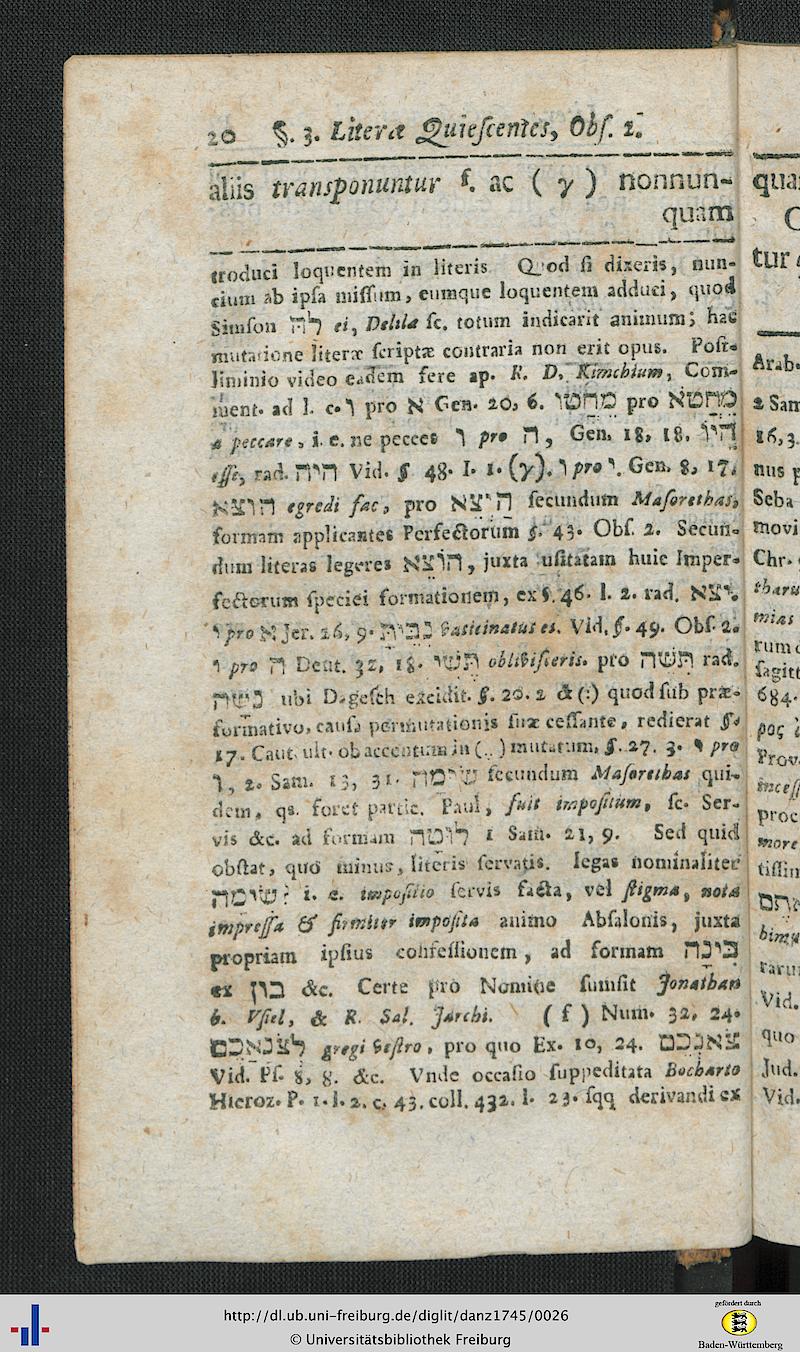 20 §. 3. Literæ Quiescentes, Obs. 2.
aliis transponuntur s. ac (γ) nonnun-
quam
troduci loquentem in literis Quod si dixeris, nun-
cium ab ipsa missum, eumque loquentem adduci, quod
Simson לה ei, Delila sc. totum indicarit animum; hac
mutatione literæ scriptæ contraria non erit opus. Post-
liminio video eadem fere ap. R. D. Kimchium, Com-
ment. ad l. c. ו pro א Gen. 20, 6. מחטו pro מחטא
a peccare, i. e. ne pecces ו pro ה, Gen. 18, 18. היו
esse, rad. היה Vid. § 48. I. 1. (γ). ו pro י. Gen. 8, 17.
הוצא egredi fac, pro היצא secundum Masorethas,
formam applicantes Perfectorum §. 43. Obs. 2. Secun-
dum literas legeres הוצא, juxta usitatam huic Imper-
fectorum speciei formationem, ex §. 46. l. 2. rad. יצא
י pro א Jer. 26, 9. נבית vaticinatus es. Vid. §. 49. Obs. 2.
י pro ה Deut. 32, 18. תשי oblivisceris. pro תשה rad.
נשה ubi Dagesch excidit. §. 20. 2 & (:) quod sub præ-
formativo, causa permutationis suæ cessante, redierat §.
17. Caut. ult. ob accentum in (..) mutatum, §. 27. 3. י pro
ו, 2. Sam. 13, 31. שימה secundum Masorethas qui-
dem, qs. foret partic. Paul, fuit impositum, sc. Ser-
vis &c. ad formam לוטה 1 Sam. 21, 9. Sed quid
obstat, quo minus, literis servatis. legas nominaliter
שימה: i. e. impositio servis facta, vel stigma, nota
impressa & firmiter imposita animo Absalonis, juxta
propriam ipsius confessionem, ad formam בינה
ex בון &c. Certe pro Nomine sumsit Jonathan
b. Vsiel, & R. Sal. Jarchi. (f) Num. 32, 24.
לצנאכם gregi vestro, pro quo Ex. 10, 24. צאנכם
Vid. Ps. 8, 8. &c. Vnde occasio suppeditata Bocharto
Hieroz. P. 1. l. 2. c. 43. coll. 432. l. 23. sqq derivandi ex
qua
tur
Arab.
2 Sam
16, 3.
nus p
Seba
movi
Chr.
tharu
mias
rum
sagitt
684.
ρος
Prov.
incess
proc
more
tissim
bimu
raru
Vid.
quo
Jud.
Vid.
http://dl.ub.uni-freiburg.de/diglit/danz1745/0026
© Universitätsbibliothek Freiburg
gefördert durch
Baden-Württemberg